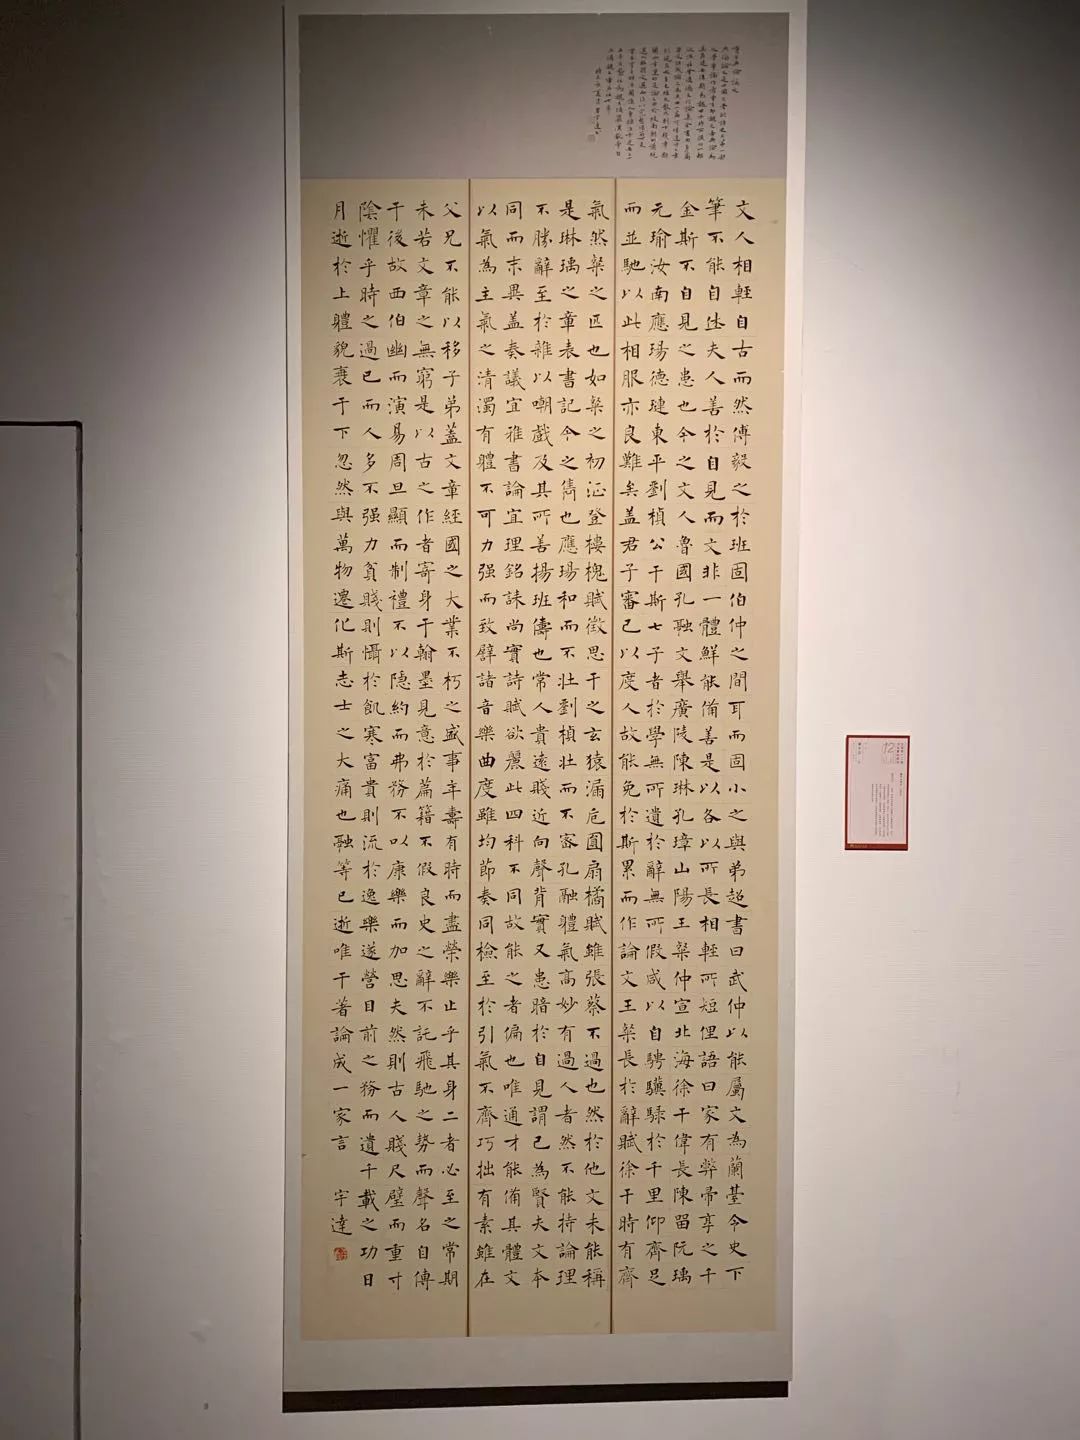 文人相輕自古而然傅毅之於班固伯仲之間耳而固小之與弟超書曰武仲以能屬文為蘭臺令史下
筆不能自休夫人善於自見而文非一體鮮能備善是以各以所長相輕所短俚語曰家有弊帚享之千
金斯不自見之患也今之文人魯國孔融文舉廣陵陳琳孔璋山陽王粲仲宣北海徐干偉長陳留阮瑀
元瑜汝南應瑒德璉東平劉楨公干斯七子者於學無所遺於辭無所假咸以自騁驥騄於千里仰齊足
而並馳以此相服亦良難矣蓋君子審己以度人故能免於斯累而作論文王粲長於辭賦徐干時有齊
氣然粲之匹也如粲之初征登樓槐賦徵思干之玄猿漏卮圓扇橘賦雖張蔡不過也然於他文未能稱
是琳瑀之章表書記今之雋也應瑒和而不壯劉楨壯而不密孔融體氣高妙有過人者然不能持論理
不勝辭至於雜以嘲戲及其所善揚班儔也常人貴遠賤近向聲背實又患暗於自見謂己為賢夫文本
同而末異蓋奏議宜雅書論宜理銘誄尚實詩賦欲麗此四科不同故能之者偏也唯通才能備其體文
以氣為主氣之清濁有體不可力强而致譬諸音樂曲度雖均節奏同檢至於引氣不齊巧拙有素雖在
父兄不能以移子弟蓋文章經國之大業不朽之盛事年壽有時而盡榮樂止乎其身二者必至之常期
未若文章之無窮是以古之作者寄身于翰墨見意於篇籍不假良史之辭不託飛馳之勢而聲名自傳
于後故西伯幽而演易周旦顯而制禮不以隱約而弗務不以康樂而加思夫然則古人賤尺璧而重寸
陰懼乎時之過已而人多不强力貧賤則懾於飢寒富貴則流於逸樂遂營目前之務而遺千載之功日
月逝於上體貌衰于下忽然與萬物遷化斯志士之大痛也融等已逝唯干著論成一家言 宇達
12